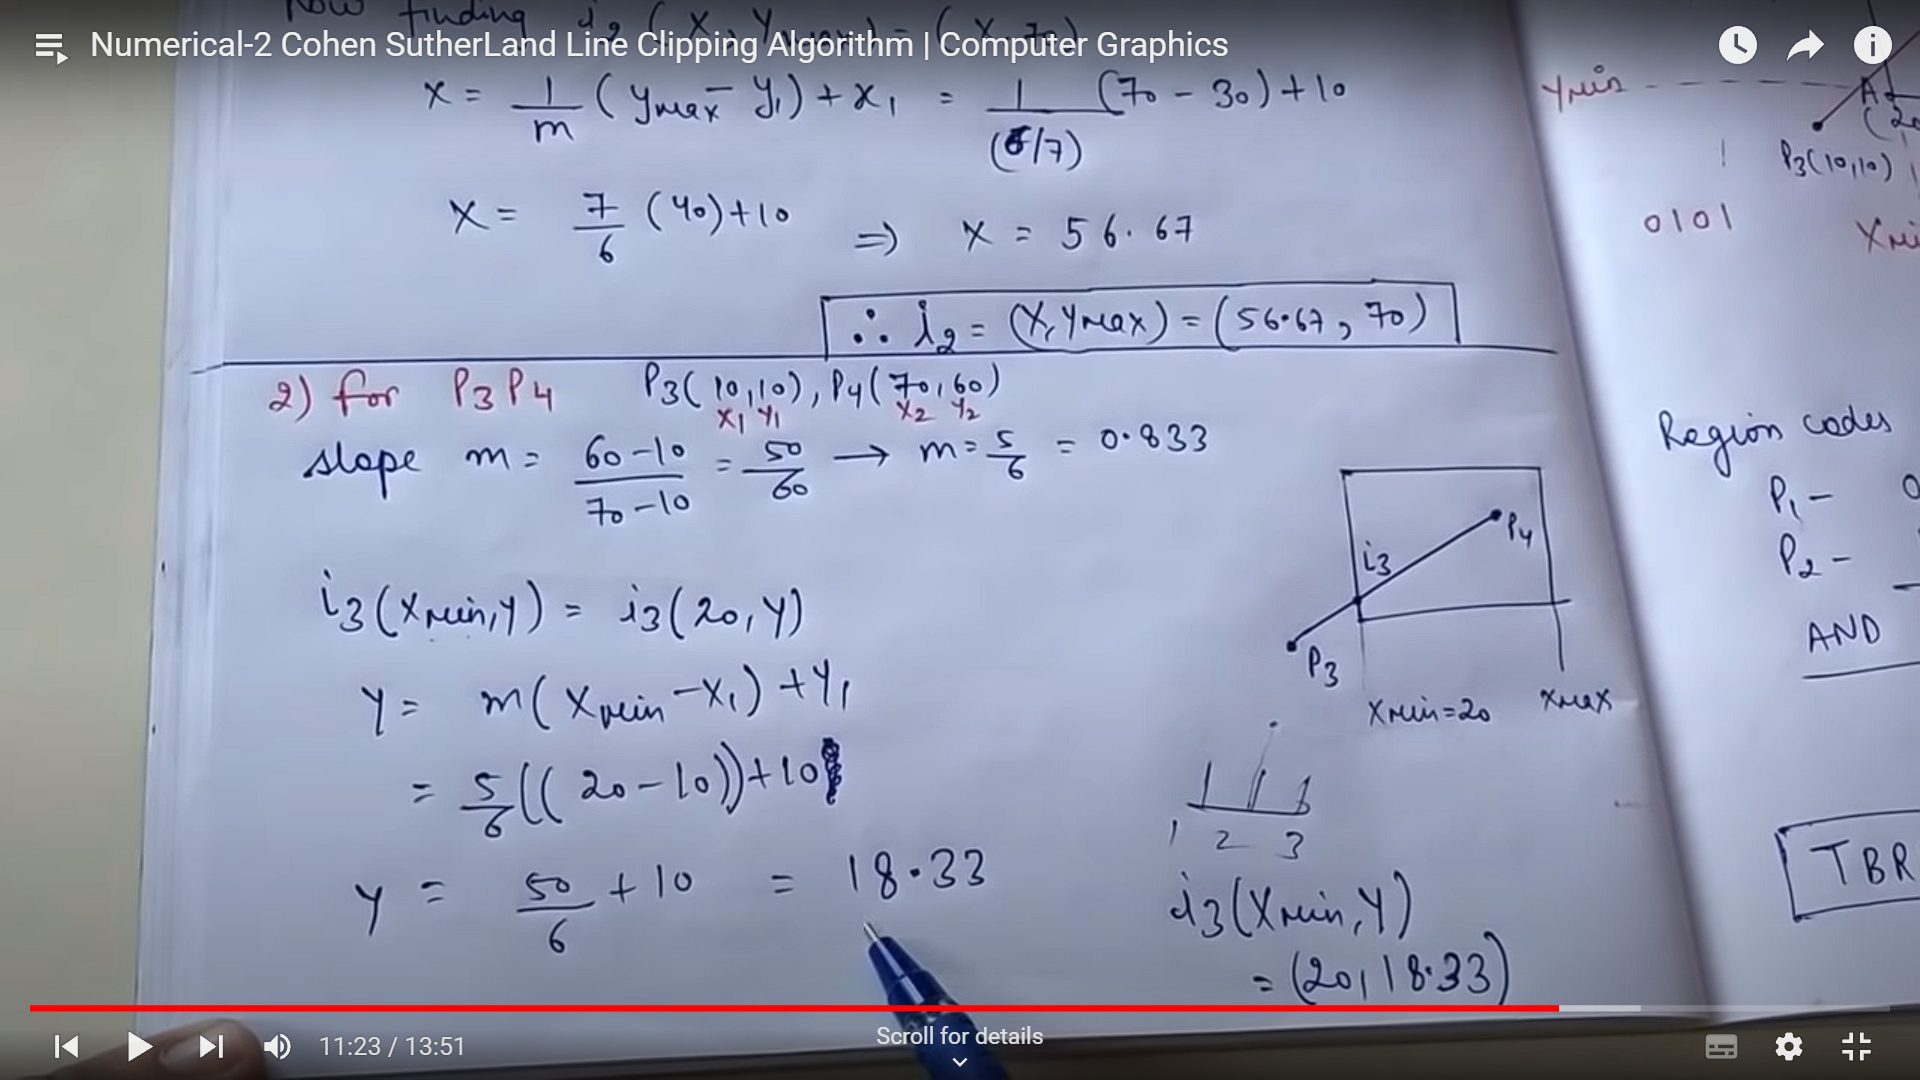 Now finding i2 (X, Ymax) = (X, 70)
Numerical-2 Cohen SutherLand Line Clipping Algorithm | Computer Graphics
X = 1/m (Ymax - Y1) + X1 = 1/(6/7) (70 - 30) + 10
X = 7/6 (40) + 10 => X = 56.67
∴ i2 = (X, Ymax) = (56.67, 70)
2) for P3P4 P3(10,10), P4(70,60)
X1 Y1 X2 Y2
slope m = 60-10/70-10 = 50/60 → m = 5/6 = 0.833
i3(Xmin, Y) = i3(20, Y)
Y = m(Xmin - X1) + Y1
= 5/6((20-10))+10
Y = 50/6 + 10 = 18.33
i3
P4
P3
Xmin=20 Xmax
1 2 3
i3(Xmin, Y)
= (20, 18.33)
Ymin
A
P3(10,10)
0101
Region codes
P1 -
P2 -
AND
11:23 / 13:51
Scroll for details